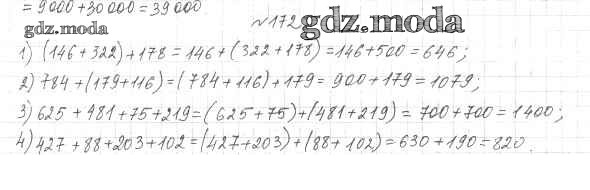 = 9000+30000 = 39000
gdz.moda
№172 gdz.moda
1) (146+322)+178 = 146+(322+178) = 146+500 = 646;
2) 784+(179+116) = (784+116)+179 = 900+179 = 1079;
3) 625+481+75+219 = (625+75)+(481+219) = 700+700 = 1400;
4) 427+88+203+102 = (427+203)+(88+102) = 630+190 = 820.